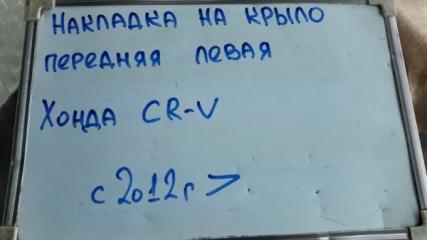 НАКЛАДКА НА КРЫЛО
ПЕРЕДНЯЯ ЛЕВАЯ
ХОНДА CR-V
с 2012 г >